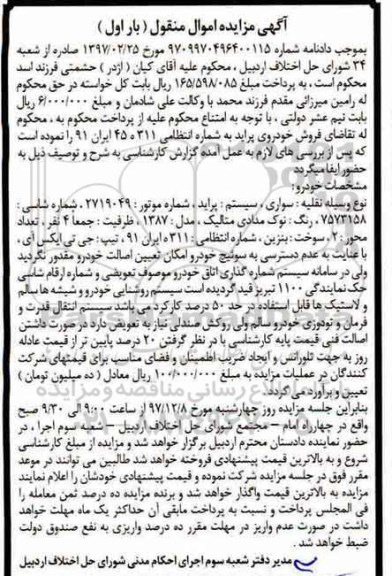 آگهی مزایده اموال منقول ( بار اول )
بموجب دادنامه شماره ۹۷۰۹۹۷۰۴۹۶۴۰۰۱۱۵ مورخ ۱۳۹۷/۰۲/۲۵ صادره از شعبه
۳۴ شورای حل اختلاف اردبیل ، محکوم علیه آقای کیان ( اژدر ) حشمتی فرزند اسد
محکوم است ، به پرداخت مبلغ ۱۶۵/۵۹۸/۰۸۵ ریال بابت کل خواسته در حق محکوم
له رامین میرزائی مقدم فرزند محمد با وکالت علی شادمان و مبلغ ۶/۰۰۰/۰۰۰ ریال
بابت نیم عشر دولتی ، با توجه به امتناع محکوم علیه از پرداخت محکوم به ، محکوم
له تقاضای فروش خودروی پراید به شماره انتظامی ۳۱۱ ه ۴۵ ایران ۹۱ را نموده است
که پس از بررسی های لازم به عمل آمده گزارش کارشناسی به شرح و توصیف ذیل به
حضور ایفا میگردد
مشخصات خودرو :
نوع وسیله نقلیه : سواری ، سیستم : پراید ، شماره موتور : ۲۷۱۹۰۴۹ ، شماره شاسی :
۷۵۷۳۱۵۸ ، رنگ : نوک مدادی متالیک ، مدل : ۱۳۸۷ ، ظرفیت : جمعاً ۴ نفر ، تعداد
محور : ۲ ، سوخت : بنزین ، شماره انتظامی : ۳۱۱ ه ایران ۹۱ ، تیپ : جی تی ایکس آی ،
با عنایت به عدم دسترسی به سوئیچ خودرو امکان تعیین اصالت خودرو مقدور نگردید
ولی در سامانه سیستم شماره گذاری اتاق خودرو موصوف تعویضی و شماره ارقام شاسی
حک نمایندگی ۱۱۰۰ تبریز قید گردیده است سیستم روشنایی خودرو و شیشه ها سالم
و لاستیک ها قابل استفاده در حد ۵۰ درصد کارکرد می باشد سیستم انتقال قدرت و
فرمان و تودوزی خودرو سالم ولی روکش صندلی نیاز به تعویض دارد در صورت داشتن
اصالت فنی قیمت پایه کارشناسی با در نظر گرفتن ۲۰ درصد پایین تر از قیمت عادله
روز به جهت تلورانس و ایجاد ضریب اطمینان و فضای مناسب برای قیمتهای شرکت
کنندگان در عملیات مزایده به مبلغ ۱۰۰/۰۰۰/۰۰۰ ریال معادل ( ده میلیون تومان )
تعیین و برآورد می گردد .
بنابراین جلسه مزایده روز چهارشنبه مورخ ۹۷/۱۲/۸ از ساعت ۹:۰۰ الی ۹:۳۰ صبح
واقع در چهارراه امام – مجتمع شورای حل اختلاف اردبیل – شعبه سوم اجرا ، در
حضور نماینده دادستان محترم اردبیل برگزار خواهد شد و مزایده از مبلغ کارشناسی
شروع و به بالاترین قیمت پیشنهادی فروخته خواهد شد طالبین می توانند در موعد
مقرر فوق در جلسه مزایده شرکت نموده و قیمت پیشنهادی خودشان را اعلام نمایند
مزایده به بالاترین قیمت واگذار خواهد شد و برنده مزایده ده درصد ثمن معامله را
فی المجلس پرداخت و نسبت به پرداخت مابقی آن حداکثر یک ماه مهلت خواهد
داشت در صورت عدم واریز در مهلت مقرر ده درصد واریزی به نفع صندوق دولت
ضبط خواهد شد .
مدیر دفتر شعبه سوم اجرای احکام مدنی شورای حل اختلاف اردبیل